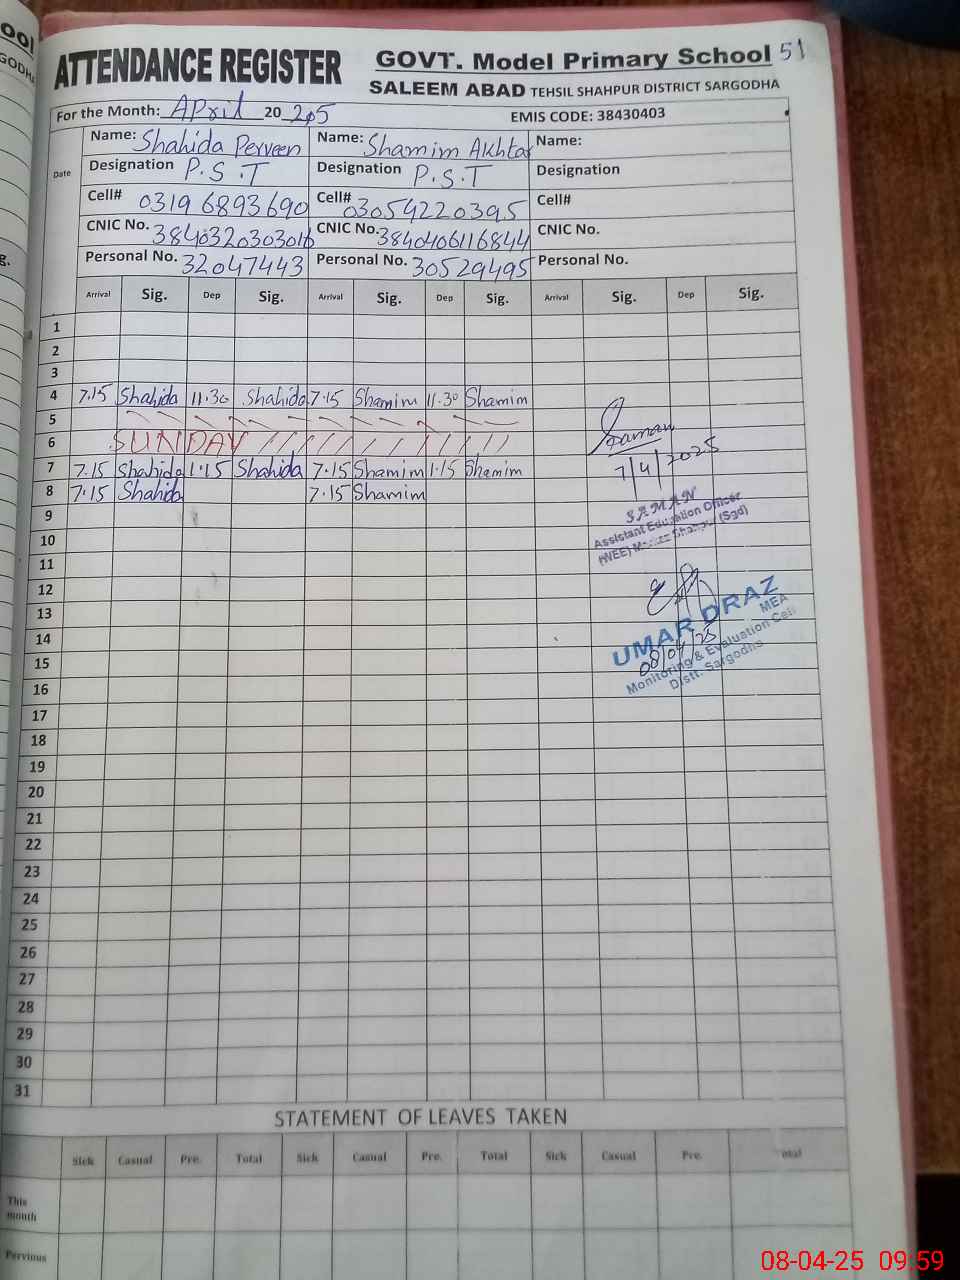 ATTENDANCE REGISTER
GOVT. Model Primary School 51
SALEEM ABAD TEHSIL SHAHPUR DISTRICT SARGODHA
For the Month: April 20 25
EMIS CODE: 38430403
Date
Name: Shahida Perveen Name: Shamim Akhtar Name:
Designation P.S.T Designation P.S.T Designation
Cell# 03196893690 Cell# 03054220395 Cell#
CNIC No. CNIC No. 3840406116844 CNIC No.
Personal No. 32047443 Personal No. 30529495 Personal No.
Arrival Sig. Dep Sig. Arrival Sig. Dep Sig. Arrival Sig. Dep Sig.
1
2
3
4 7.15 Shahida 11.30 Shahida 7.15 Shamim 11.30 Shamim
5
6 SUNDAY
7 7.15 Shahida 1.15 Shahida 7.15 Shamim 1.15 Shamim
8 7.15 Shahida 7.15 Shamim
9
10
11
12
13
14
15
16
17
18
19
20
21
22
23
24
25
26
27
28
29
30
31
Saman
7/4/2025
SAMAN
Assistant Education Officer
(WEE) Markaz Shahpur (Sgd)
UMAR DRAZ
MEA
08/04/25
Monitoring & Evaluation Cell
Distt: Sargodha
STATEMENT OF LEAVES TAKEN
Sick Casual Pre. Total Sick Casual Pre. Total Sick Casual Pre. Total
This
month
Pervious
08-04-25 09:59